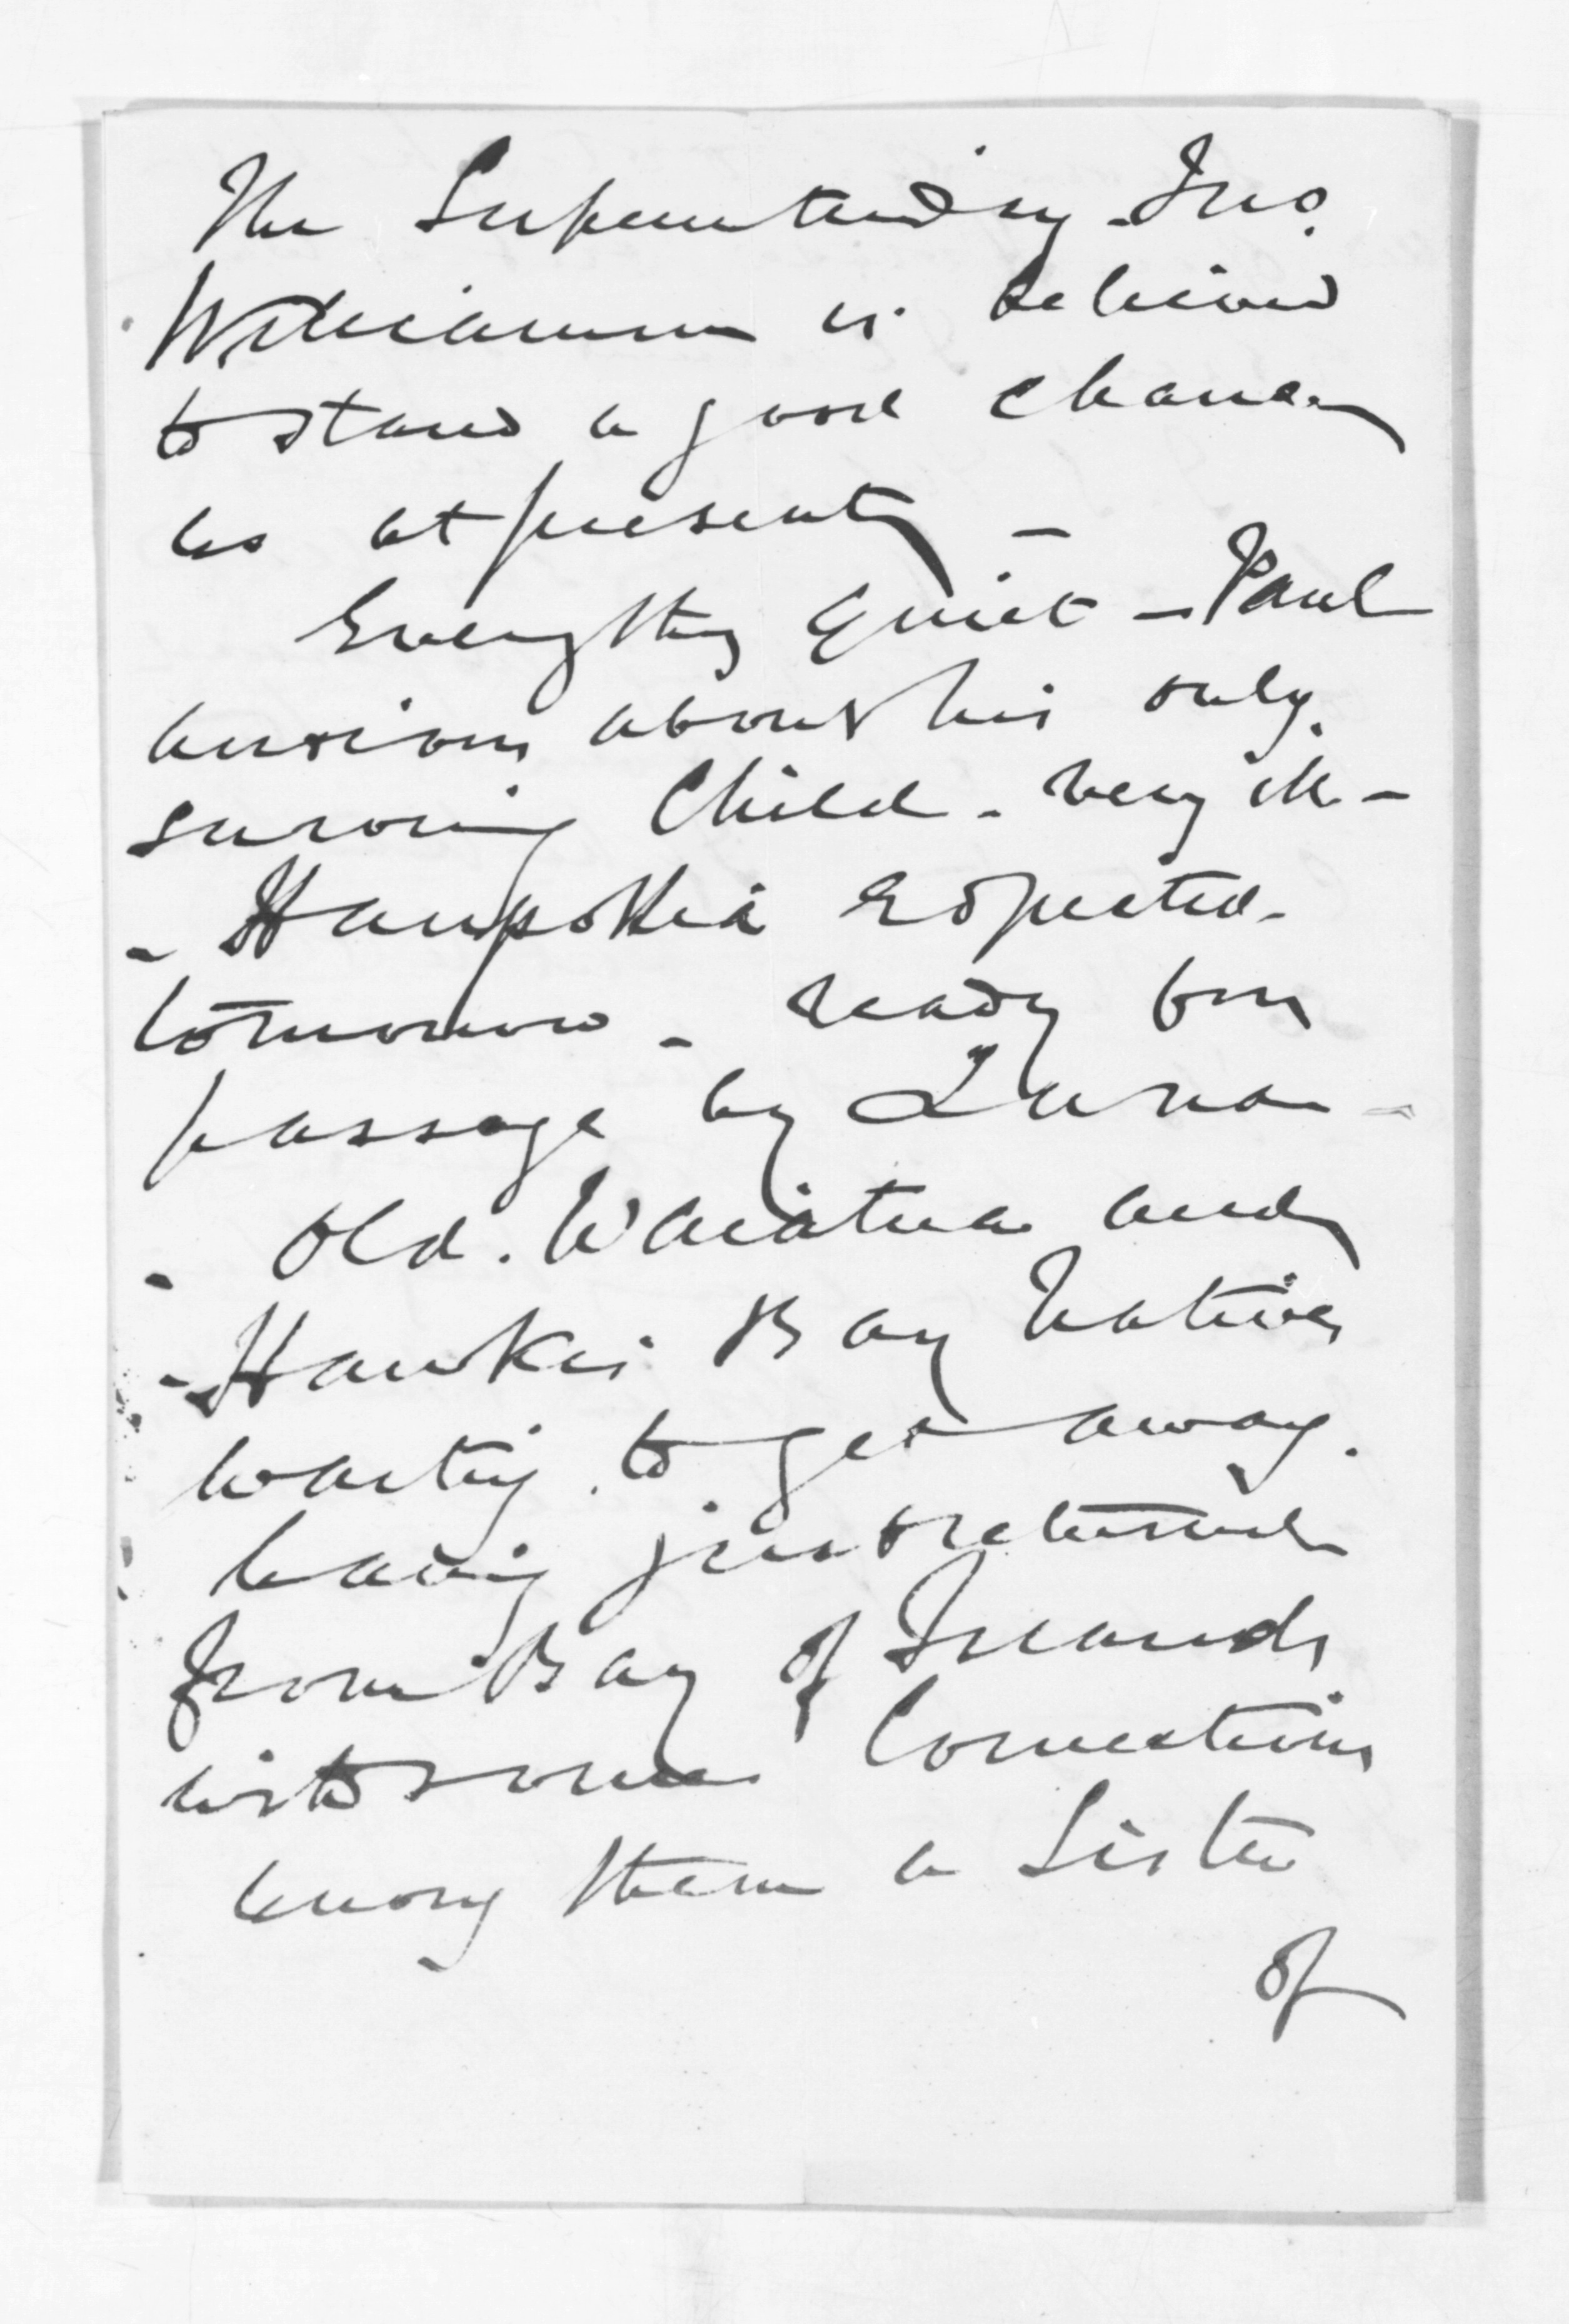 The Superintendency. Jno.
Williamson is believed
to stand a good chance
as at present –
Everything quiet – Paul
anxious about his only.
surviving Child – very ill –
– Haupokia expected.
tomorrow – ready for
passage by Luna –
– Old. Waiatua and
– Hawkes Bay Natives
waiting. to get away.
having just returned
from Bay of Islands
with some Connections
among them a Sister
of